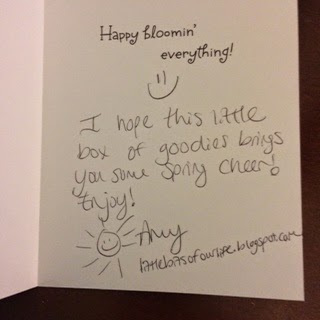 Happy bloomin'
everything!
I hope this little
box of goodies brings
you some spring cheer!
Enjoy!
Amy
littlebitsofourlife.blogspot.com